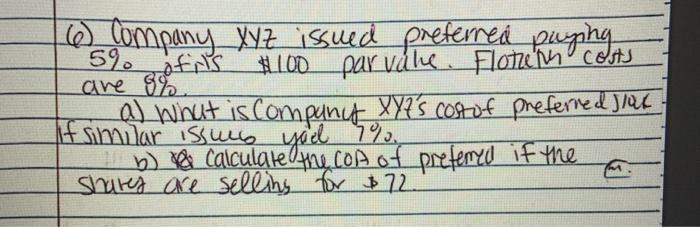 6) Company XYZ issued preferred paying
5% of its $100 par value. Flotation costs
are 8%.
a) What is Company XYZ's cost of preferred
if similar issues yield 7%.
b) Calculate the cost of preferred if the
shares are selling for $72